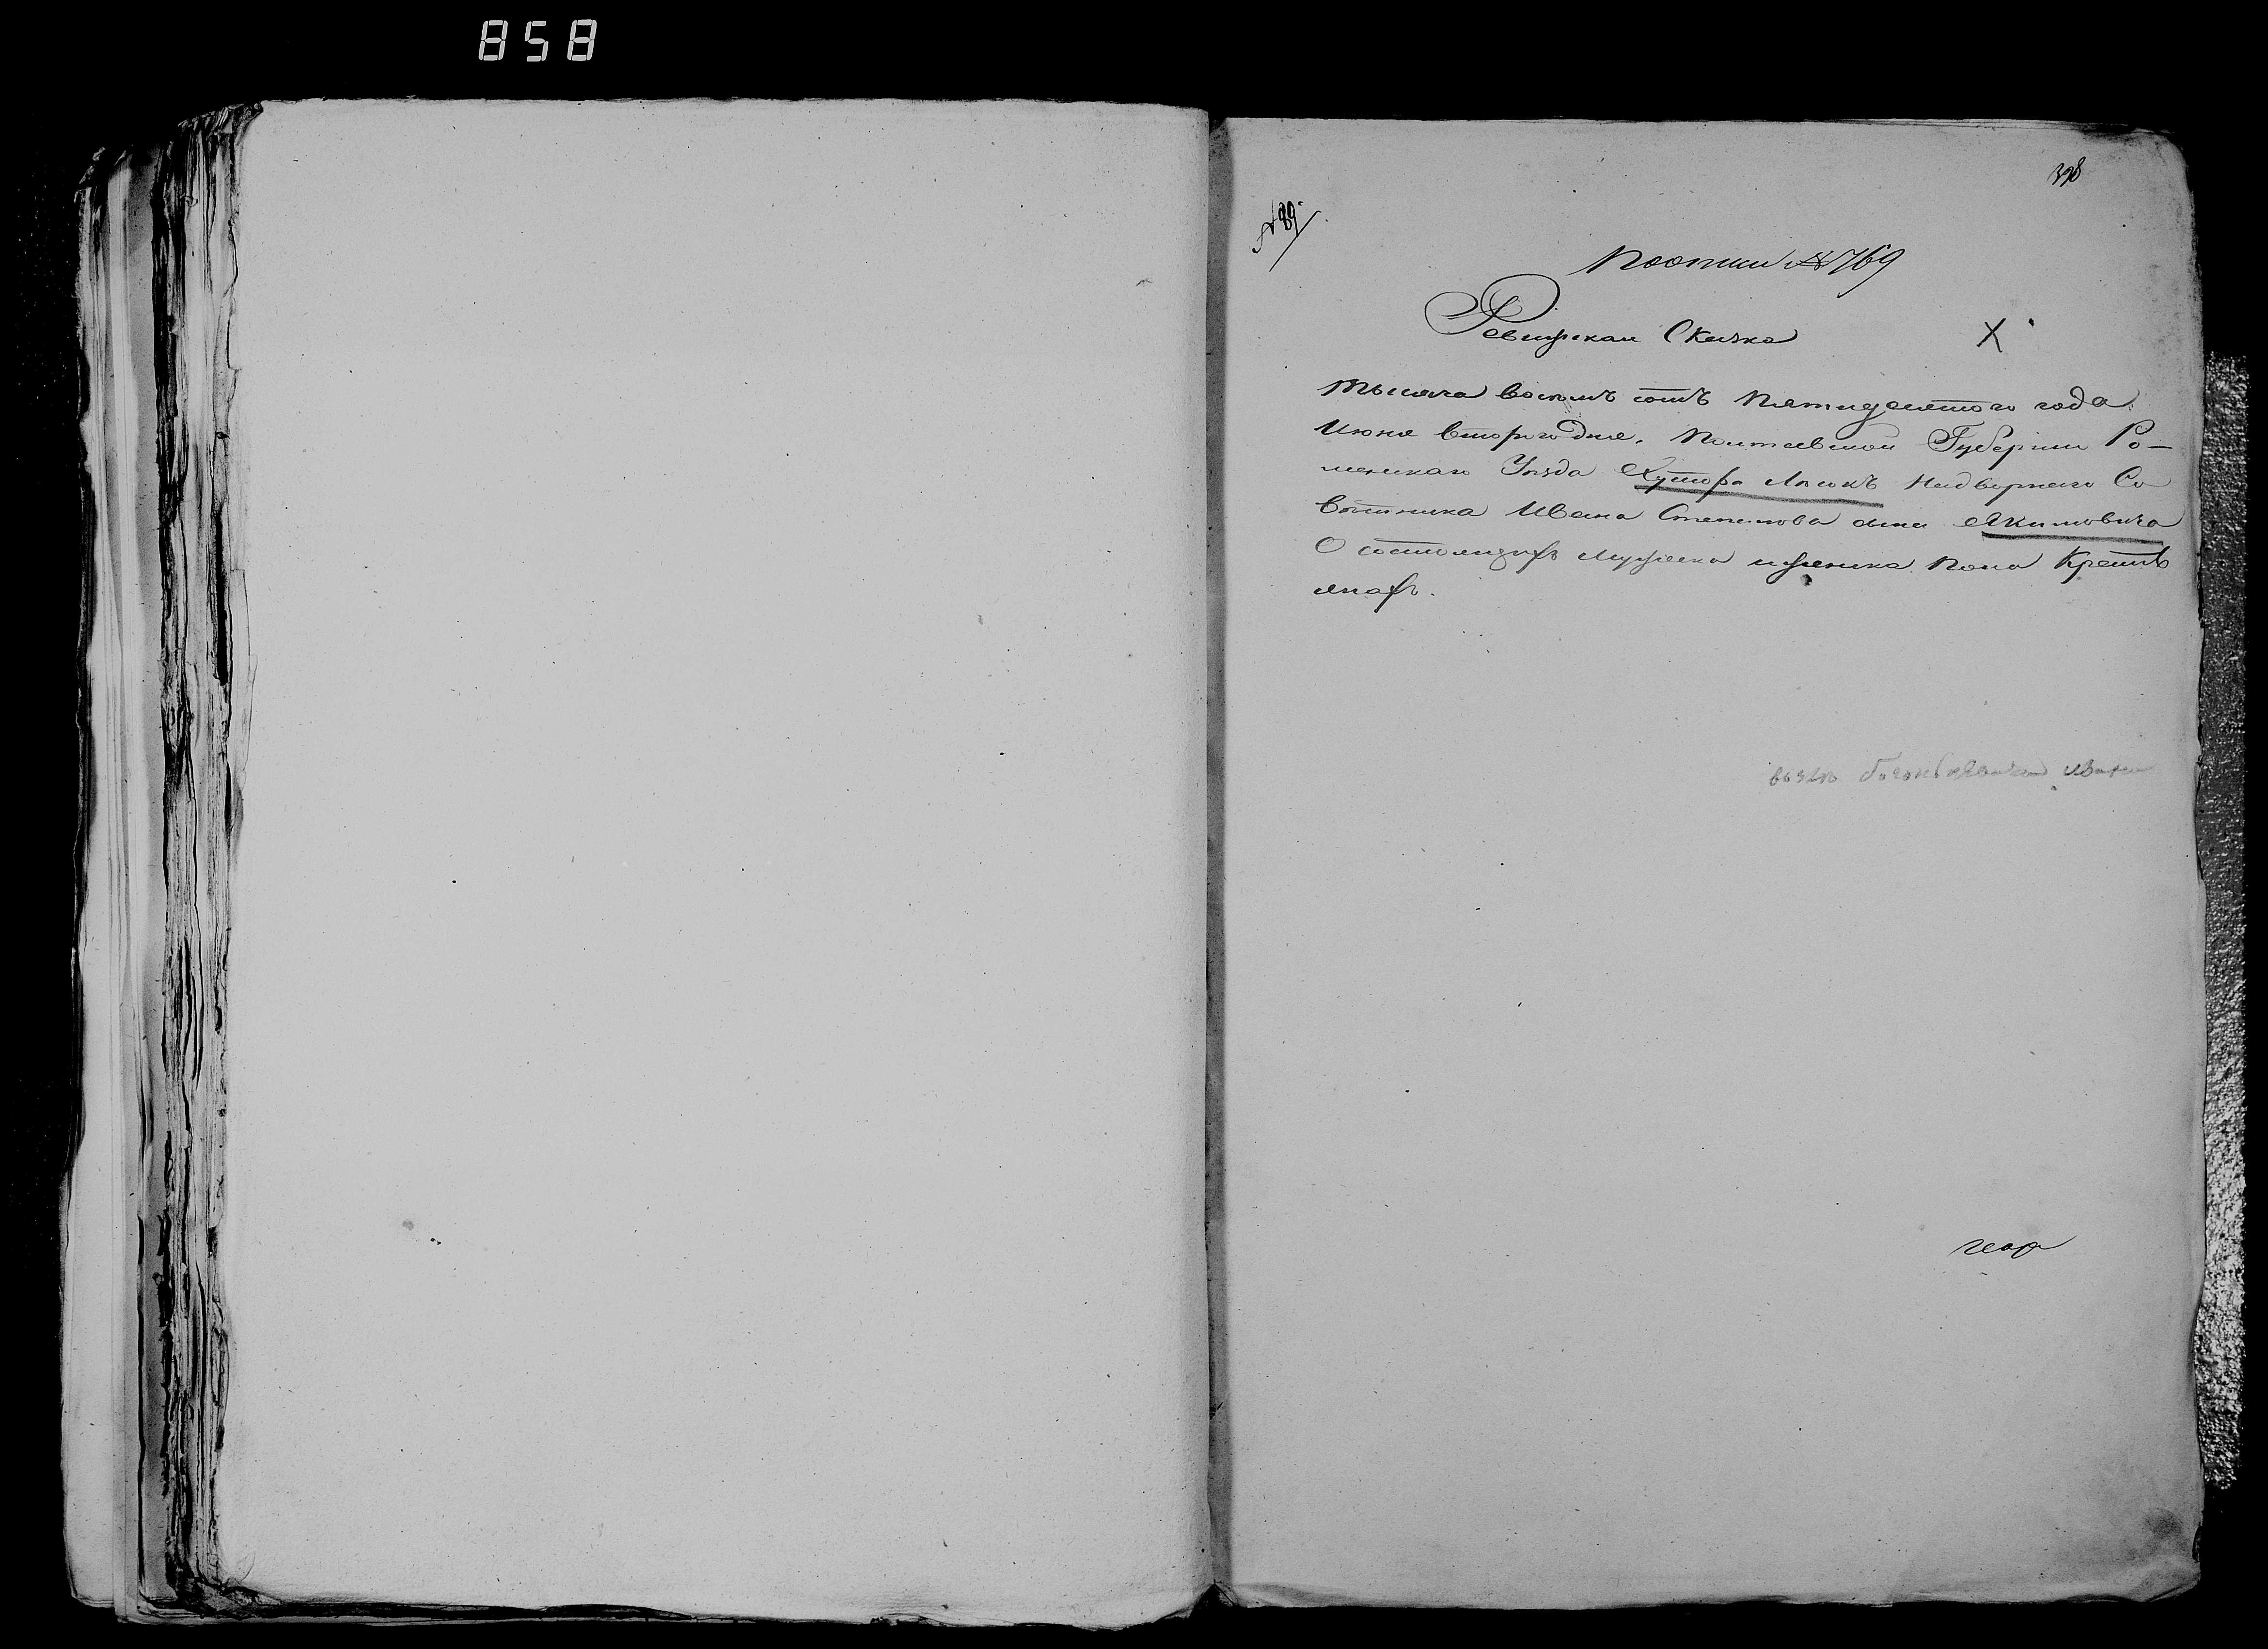 858
398
№ 89
Почтии №769
Ревизская Сказка
Х
Тысяча восемъ сотъ Пятидесятого года
Июня второго дня, Полтавской Губернии Ро-
менскаго Уезда Хутора Лисокъ Надворнаго Со
ветника Ивана Степанова сына Якимовича
О состоящихъ мужеска и женска пола Крестъ
янахъ.
Иван